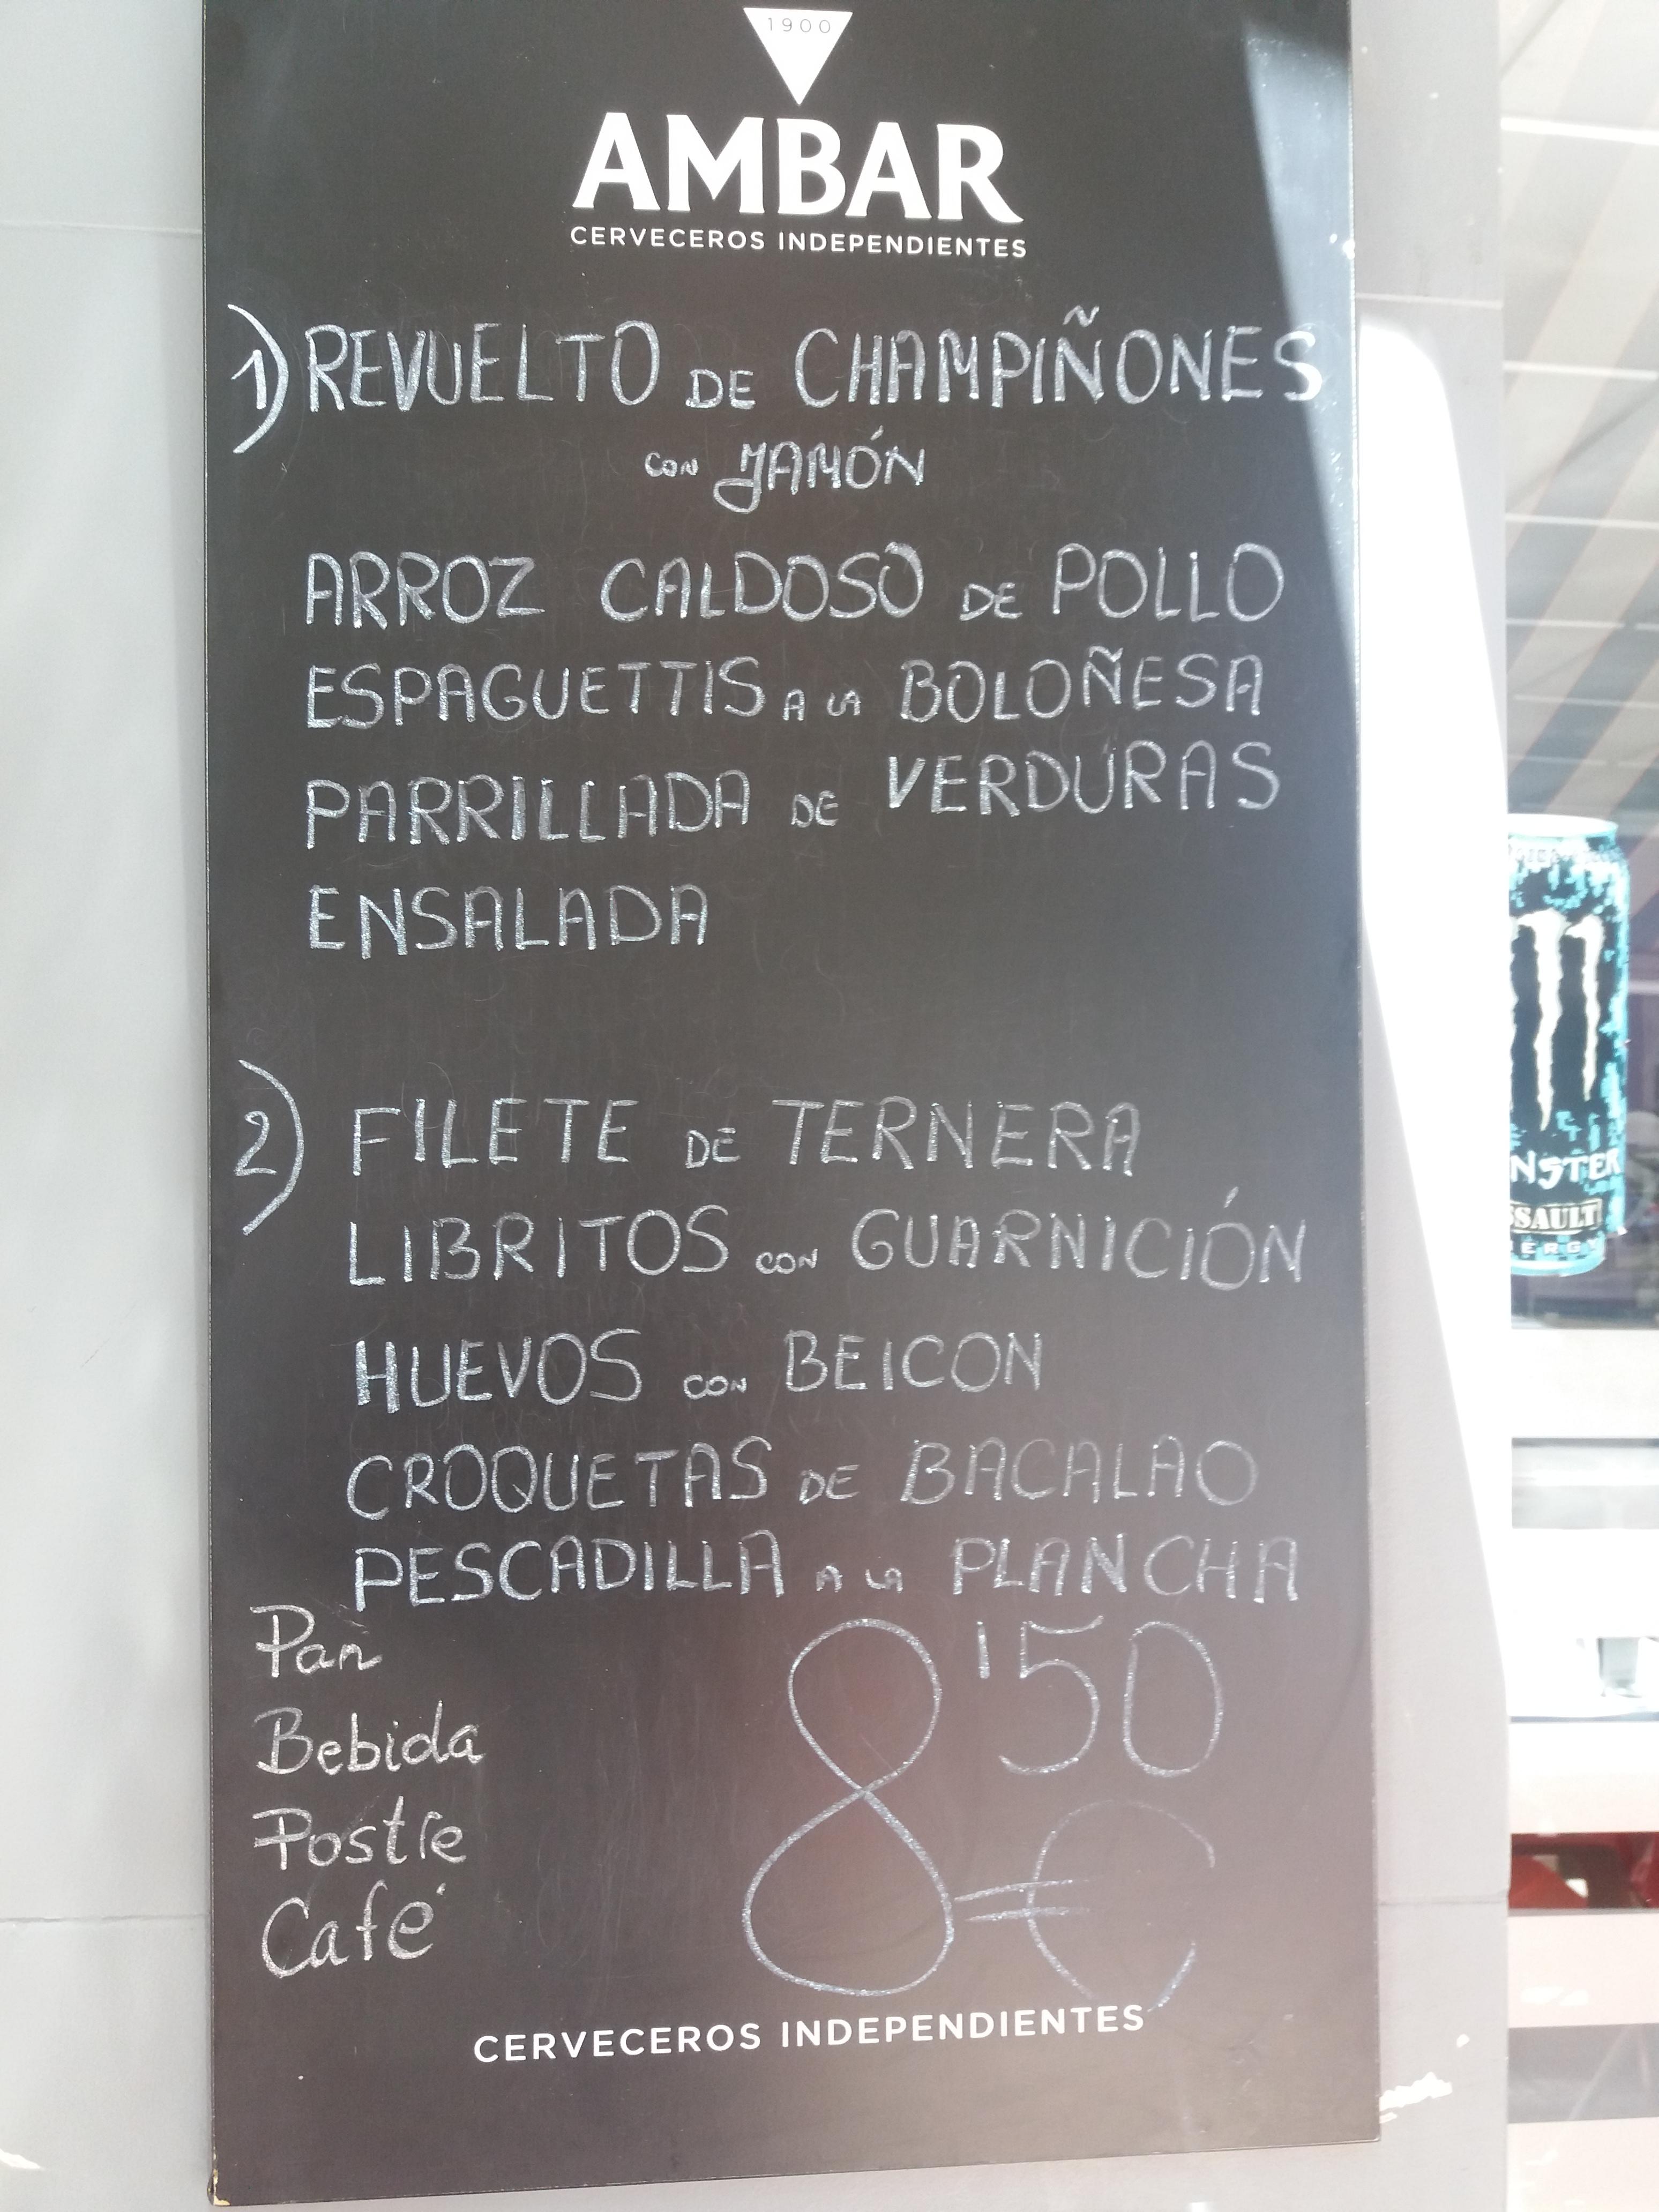 1900
AMBAR
CERVECEROS INDEPENDIENTES
1) REVUELTO DE CHAMPIÑONES
CON JAMÓN
ARROZ CALDOSO DE POLLO
ESPAGUETTIS A LA BOLOÑESA
PARRILLADA DE VERDURAS
ENSALADA
2) FILETE DE TERNERA
LIBRITOS CON GUARNICIÓN
HUEVOS CON BEICON
CROQUETAS DE BACALAO
PESCADILLA A LA PLANCHA
Pan
Bebida
Postre
Café
8'50
€
CERVECEROS INDEPENDIENTES
NSTER
SSAULT
ERGY